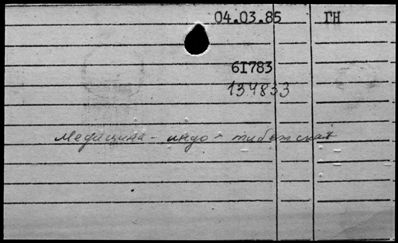 04.03.85 ГН
6I783
134833
Медицина - индо-тибетская